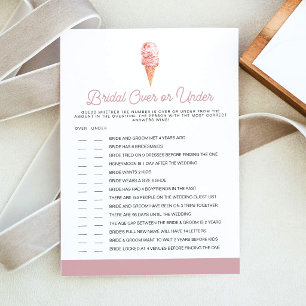 Bridal Over or Under
GUESS WHETHER THE NUMBER IS OVER OR UNDER FROM THE
AMOUNT IN THE QUESTION. THE PERSON WITH THE MOST CORRECT
ANSWERS WINS!
OVER UNDER
BRIDE AND GROOM MET 4 YEARS AGO
BRIDE HAS 6 BRIDESMAIDS
BRIDE TRIED ON 9 DRESSES BEFORE FINDING THE ONE
HONEYMOON IS 1 DAY AFTER THE WEDDING
BRIDE WANTS 2 KIDS
BRIDE WEARS A SIZE 8 SHOE
BRIDE HAS HAD 4 BOYFRIENDS IN THE PAST
THERE ARE 150 PEOPLE ON THE WEDDING GUEST LIST
BRIDE AND GROOM HAVE BEEN ON 3 TRIPS TOGETHER
THERE ARE 95 DAYS UNTIL THE WEDDING
THE AGE GAP BETWEEN THE BRIDE & GROOM IS 2 YEARS
BRIDE'S FULL NEW NAME WILL HAVE 14 LETTERS
BRIDE & GROOM WANT TO WAIT 2 YEARS BEFORE KIDS
BRIDE LOOKED AT 4 VENUES BEFORE FINDING THE ONE